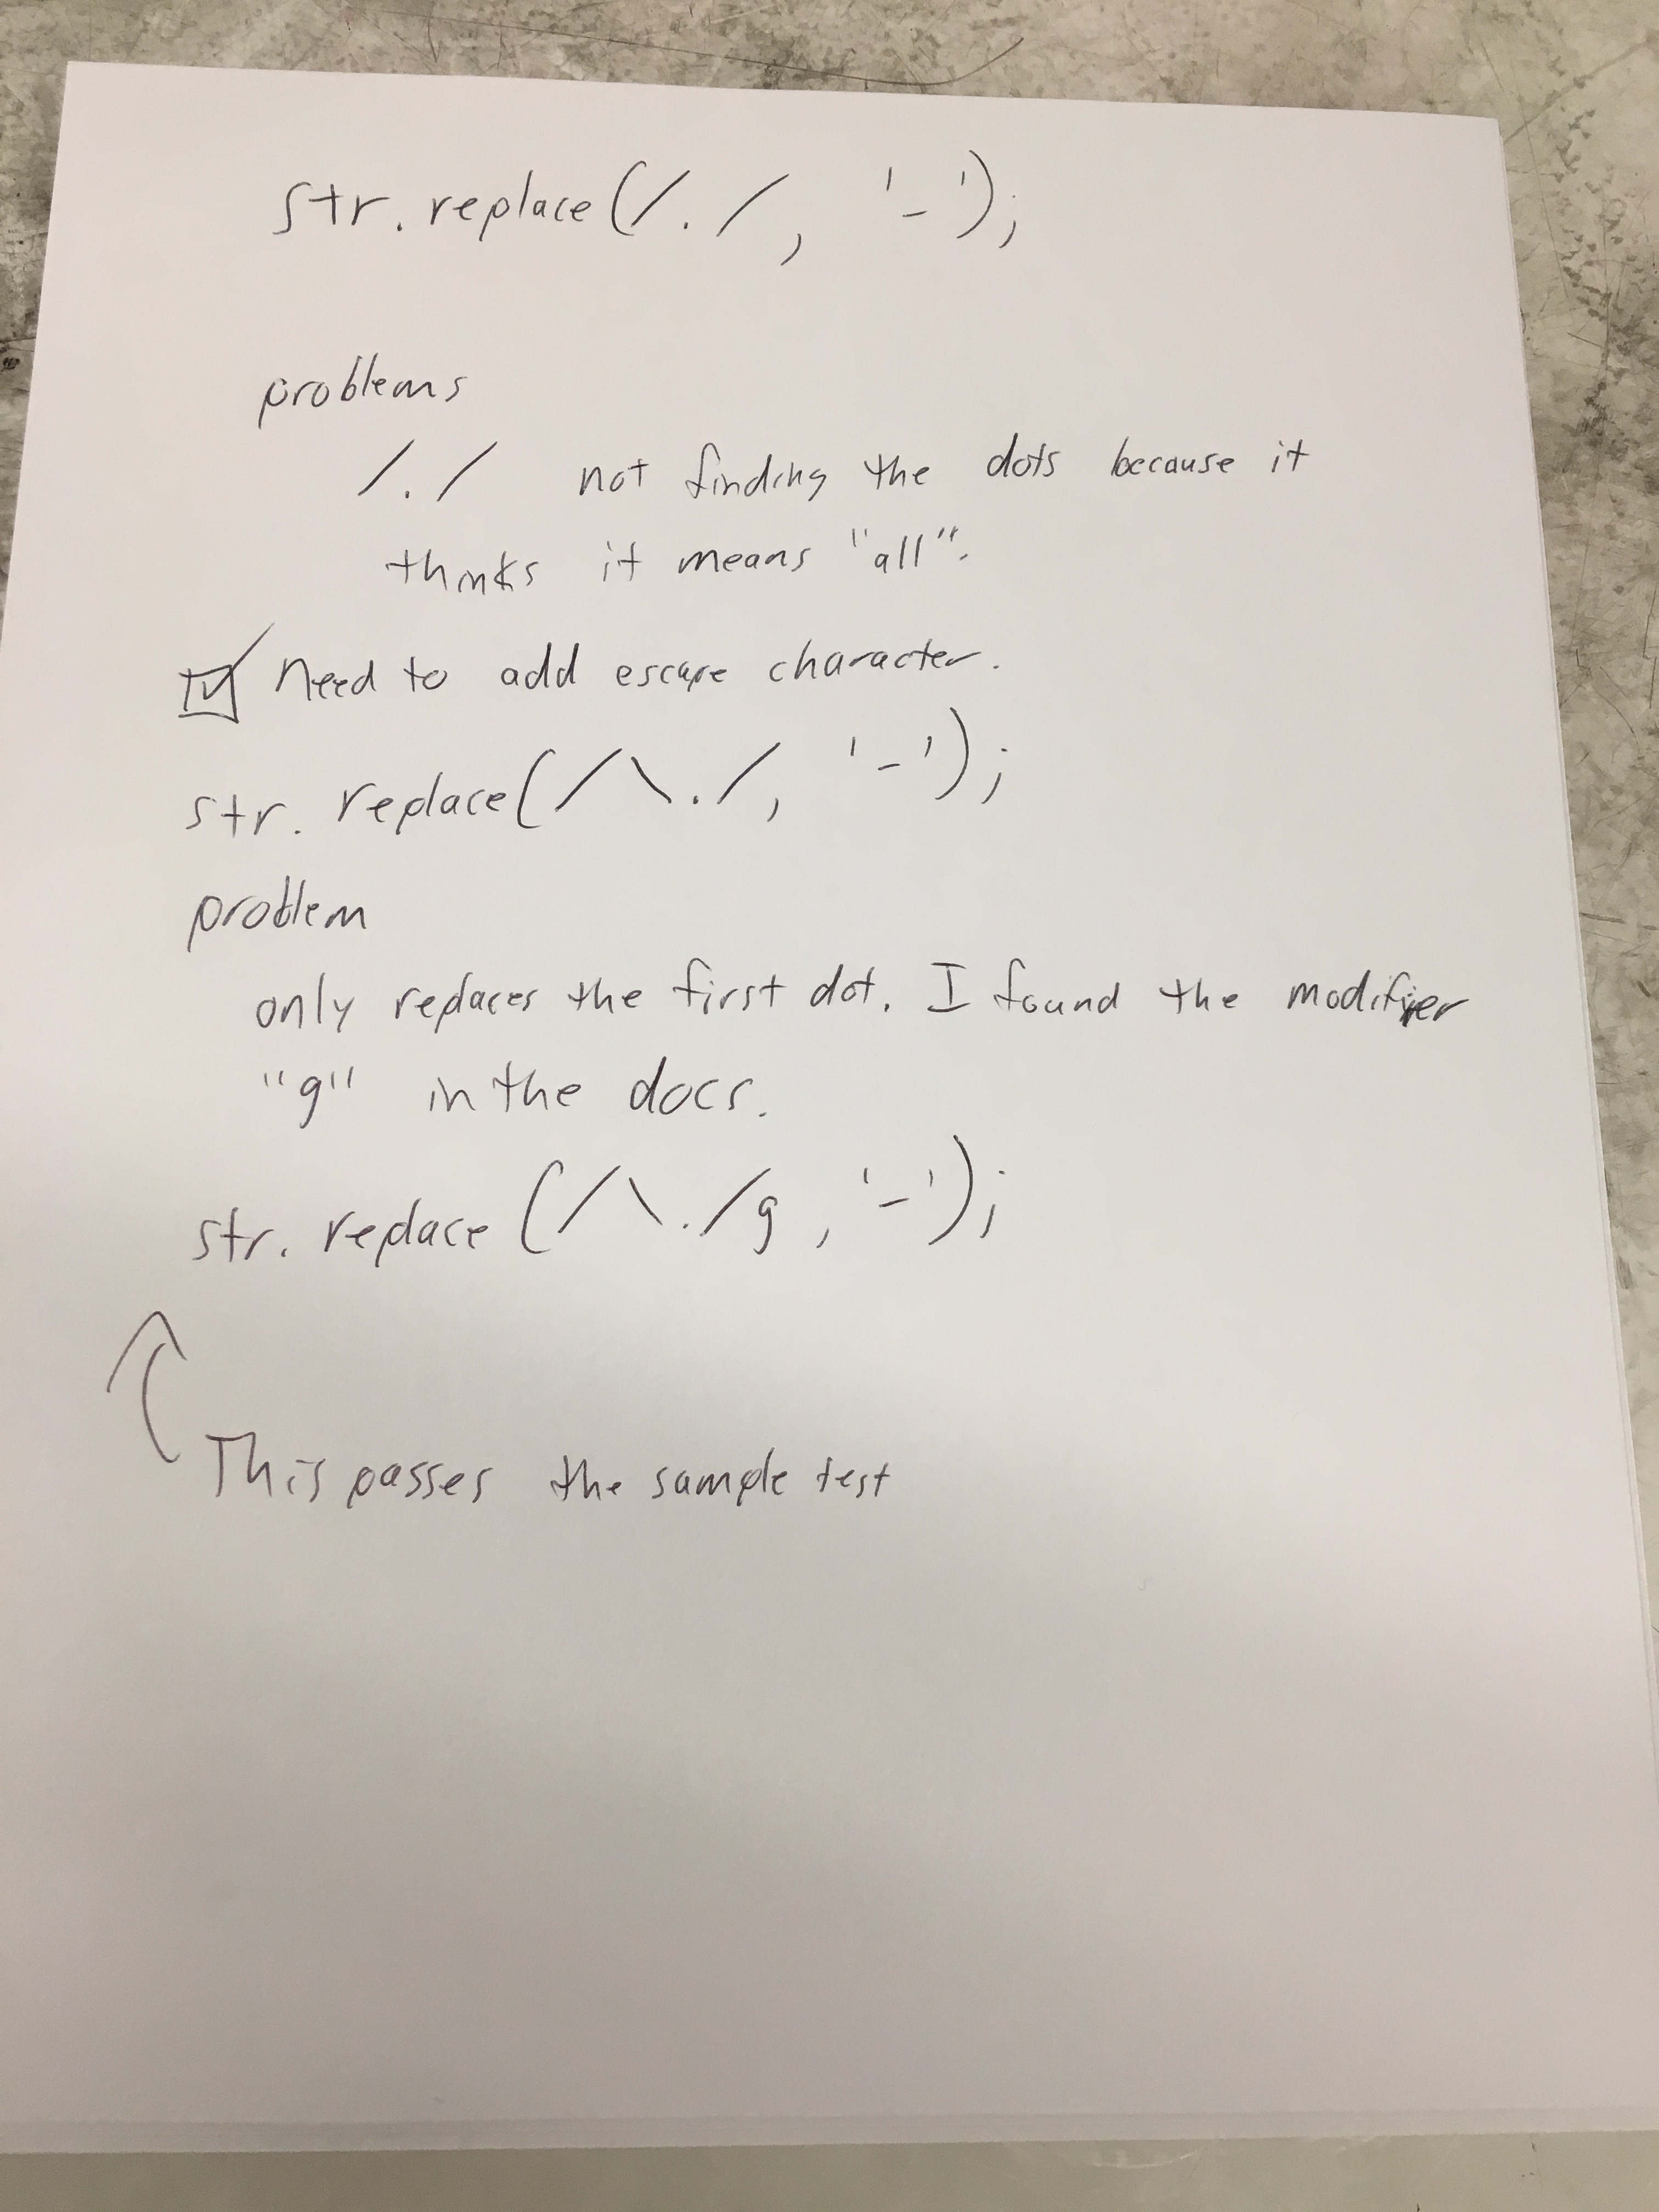 str.replace(/./, '-');
problems
/./ not finding the dots because it
thinks it means "all".
need to add escape character.
str.replace(/\./, '-');
problem
only replaces the first dot. I found the modifier
"g" in the docs.
str.replace(/\./g,'-');
This passes the sample test